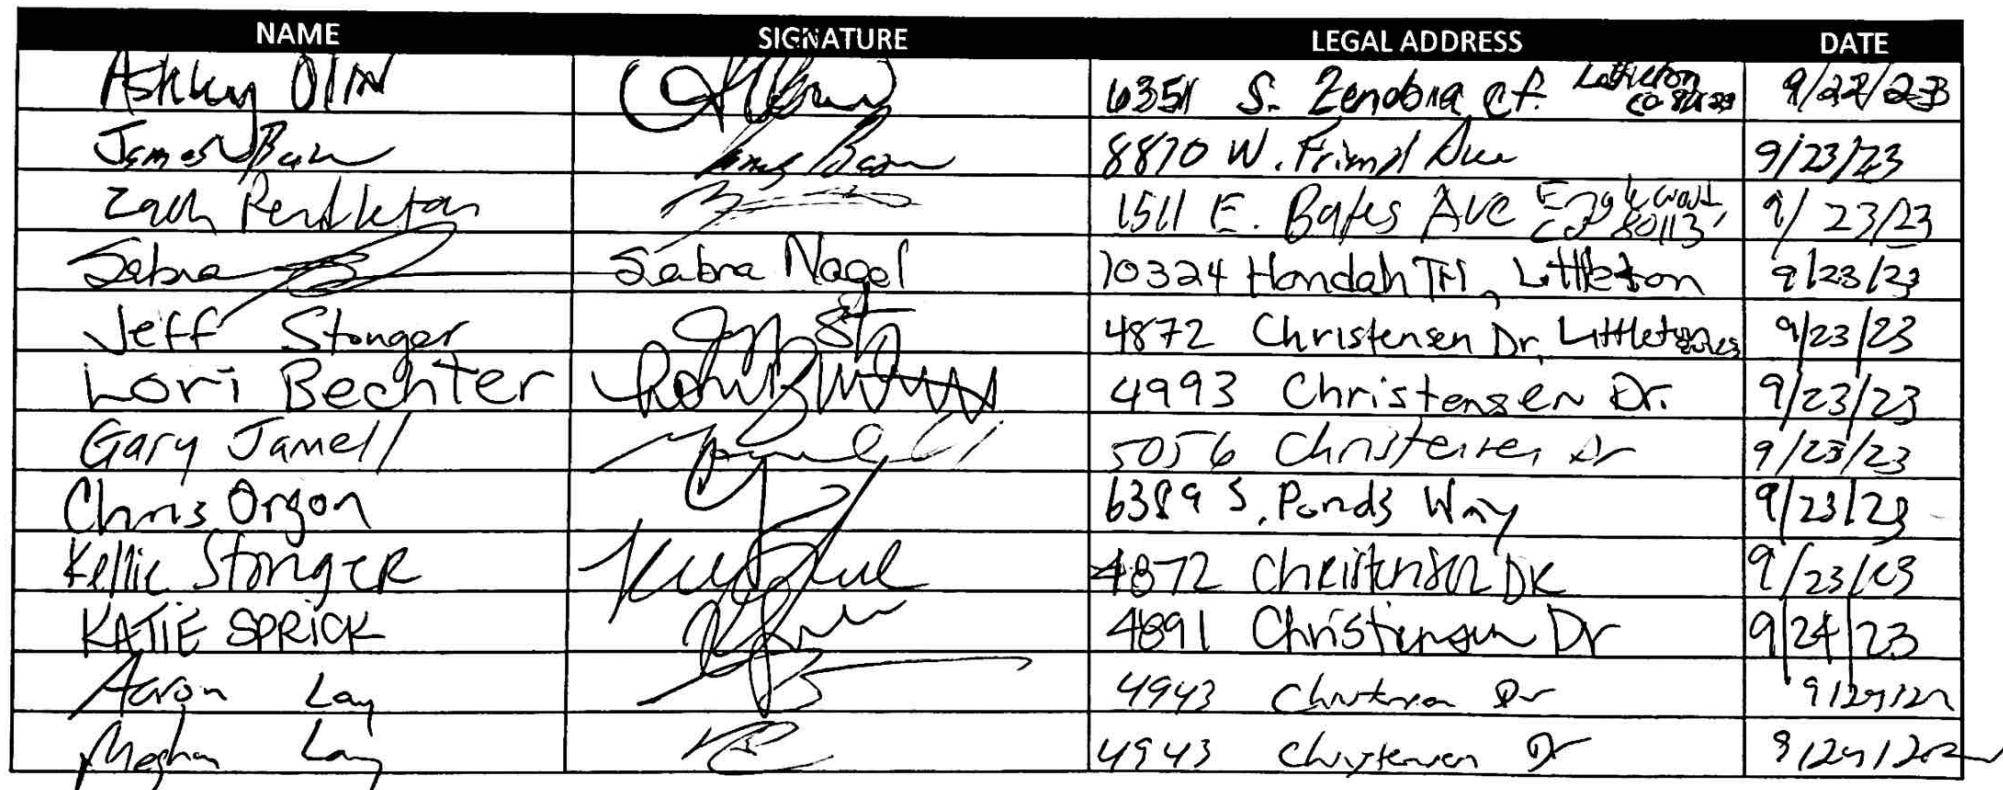 NAME SIGNATURE LEGAL ADDRESS DATE
Ashley Olin 6351 S. Zenobia Ct. Littleton CO 9/22/23
James Bain 8870 W. Ave 9/23/23
Zach Pendleton 1511 E. Bates Ave Englewood, CO 80113 9/23/23
Sabra Sabra Nagel 10324 Hondah Trl, Littleton 9/23/23
Jeff Stonger 4872 Christensen Dr, Littleton 9/23/23
Lori Bechter 4993 Christensen Dr. 9/23/23
Gary Jamell 5056 Christensen Dr 9/23/23
Chris Orgon 6389 S. Ponds Way 9/23/23
Kellie Stonger 4872 Christensen DR 9/23/23
KATIE SPRICK 4891 Christensen Dr 9/24/23
Aaron Lay 4943 Christensen Dr
Meghan Lay 4943 Christensen Dr